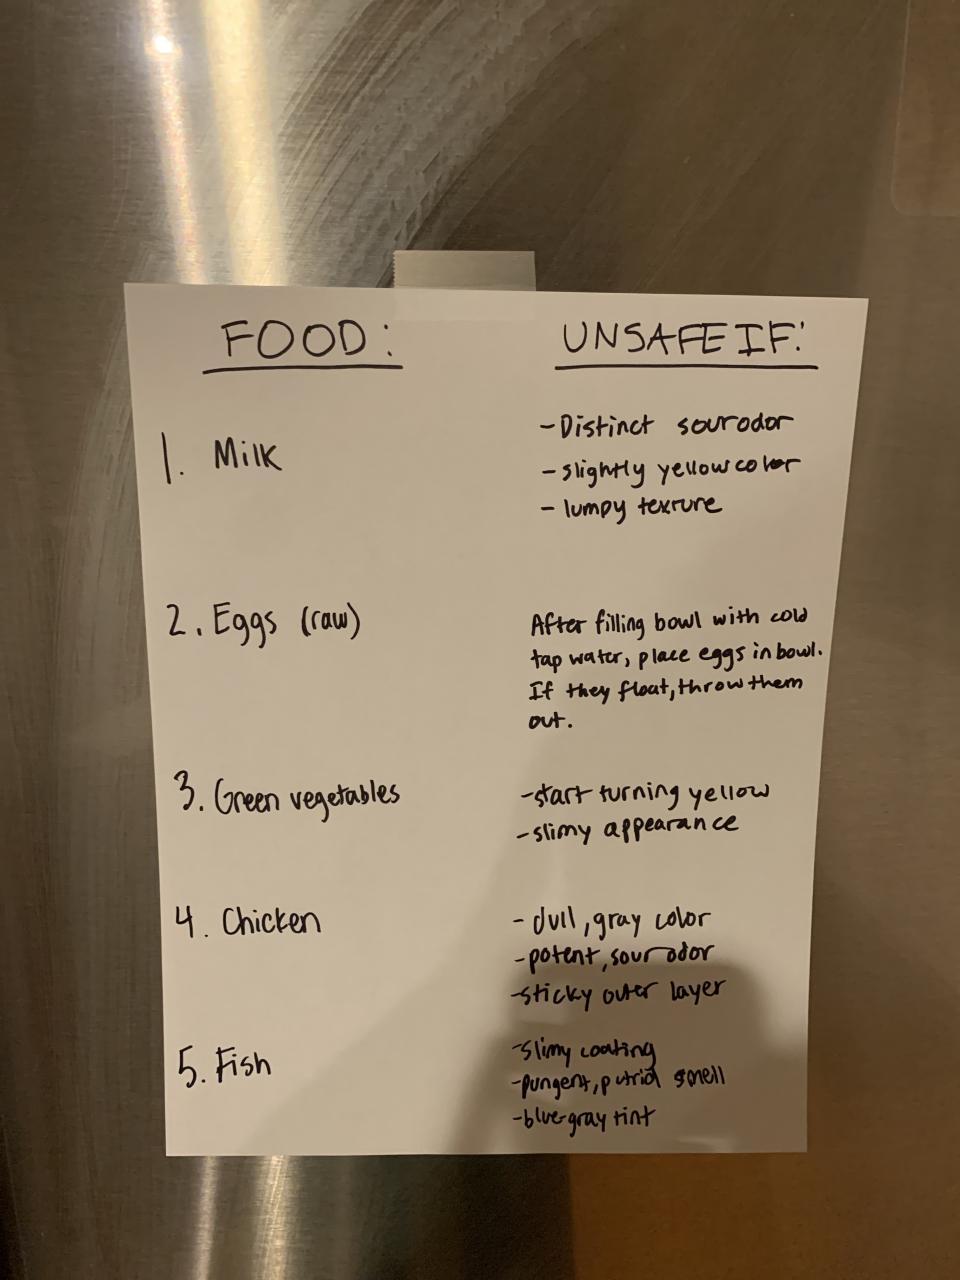 FOOD:
UNSAFE IF:
1. Milk
- Distinct sour odor
- slightly yellow color
- lumpy texture
2. Eggs (raw)
After filling bowl with cold
tap water, place eggs in bowl.
If they float, throw them
out.
3. Green vegetables
- start turning yellow
- slimy appearance
4. Chicken
- dull, gray color
- potent, sour odor
- sticky outer layer
5. Fish
- slimy coating
- pungent, putrid smell
- blue-gray tint